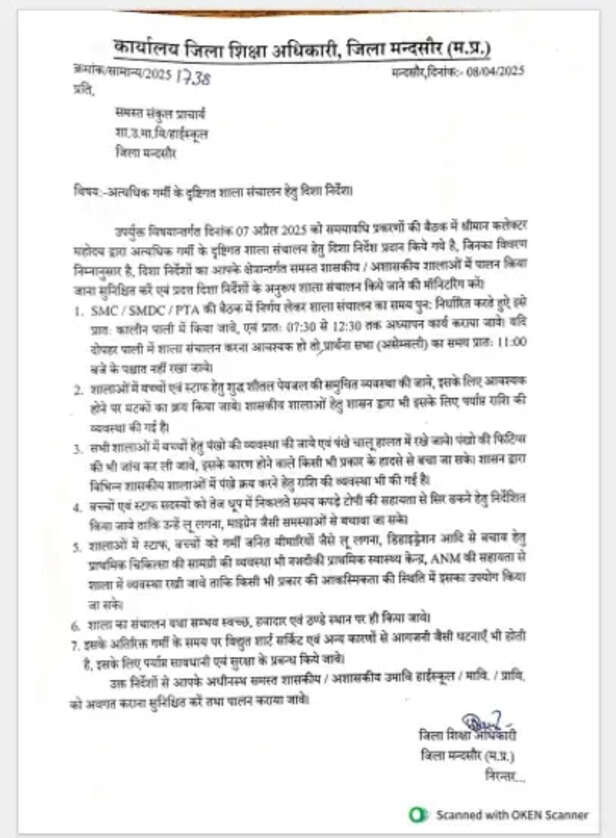 कार्यालय जिला शिक्षा अधिकारी, जिला मन्दसौर (म.प्र.)
क्रमांक/सामान्य/2025 1738 मन्दसौर,दिनांक:- 08/04/2025
प्रति,
समस्त संकुल प्राचार्य
शा.उ.मा.वि/हाईस्कूल
जिला मन्दसौर
विषय:-अत्यधिक गर्मी के दृष्टिगत शाला संचालन हेतु दिशा निर्देश।
उपर्युक्त विषयान्तर्गत दिनांक 07 अप्रैल 2025 को समयावधि प्रकरणों की बैठक में श्रीमान कलेक्टर
महोदय द्वारा अत्यधिक गर्मी के दृष्टिगत शाला संचालन हेतु दिशा निर्देश प्रदान किये गये है, जिनका विवरण
निम्नानुसार है, दिशा निर्देशों का आपके क्षेत्रान्तर्गत समस्त शासकीय / अशासकीय शालाओं में पालन किया
जाना सुनिश्चित करें एवं प्रदत्त दिशा निर्देशों के अनुरूप शाला संचालन किये जाने की मोनिटरिंग करें।
1. SMC / SMDC / PTA की बैठक में निर्णय लेकर शाला संचालन का समय पुन: निर्धारित करते हुऐ इसे
प्रात: कालीन पाली में किया जावे, एवं प्रात: 07:30 से 12:30 तक अध्यापन कार्य कराया जावे। यदि
दोपहर पाली में शाला संचालन करना आवश्यक हो तो प्रार्थना सभा (असेम्बली) का समय प्रात: 11:00
बजे के पश्चात नहीं रखा जावे।
2. शालाओं में बच्चों एवं स्टाफ हेतु शुद्ध शीतल पेयजल की समुचित व्यवस्था की जावे, इसके लिए आवश्यक
होने पर मटकों का क्रय किया जावे। शासकीय शालाओं हेतु शासन द्वारा भी इसके लिए पर्याप्त राशि की
व्यवस्था की गई है।
3. सभी शालाओं में बच्चों हेतु पंखो की व्यवस्था की जावे एवं पंखे चालू हालत में रखे जावे। पंखो की फिटिंग्स
की भी जांच कर ली जावे, इसके कारण होने वाले किसी भी प्रकार के हादसे से बचा जा सके। शासन द्वारा
विभिन्न शासकीय शालाओं में पंखे क्रय करने हेतु राशि की व्यवस्था भी की गई है।
4. बच्चों एवं स्टाफ सदस्यों को तेज धूप में निकलते समय कपड़े टोपी की सहायता से सिर ढकने हेतु निर्देशित
किया जावे ताकि उन्हें लू लगना, माइग्रेन जैसी समस्याओं से बचाया जा सके।
5. शालाओं मे स्टाफ, बच्चों को गर्मी जनित बीमारियों जैसे लू लगना, डिहाइड्रेशन आदि से बचाव हेतु
प्राथमिक चिकित्सा की सामग्री की व्यवस्था भी नजदीकी प्राथमिक स्वास्थ्य केन्द्र, ANM की सहायता से
शाला में व्यवस्था रखी जावे ताकि किसी भी प्रकार की आकस्मिकता की स्थिति में इसका उपयोग किया
जा सके।
6. शाला का संचालन यथा सम्भव स्वच्छ, हवादार एवं ठण्डे स्थान पर ही किया जावे।
7. इसके अतिरिक्त गर्मी के समय पर विद्युत शार्ट सर्किट एवं अन्य कारणों से आगजनी जैसी घटनाएँ भी होती
है, इसके लिए पर्याप्त सावधानी एवं सुरक्षा के प्रबन्ध किये जावे।
उक्त निर्देशों से आपके अधीनस्थ समस्त शासकीय / अशासकीय उमावि हाईस्कूल / मावि. / प्रावि,
को अवगत कराना सुनिश्चित करें तथा पालन कराया जावे।
जिला शिक्षा अधिकारी
जिला मन्दसौर (म.प्र.)
निरन्तर...
Scanned with OKEN Scanner